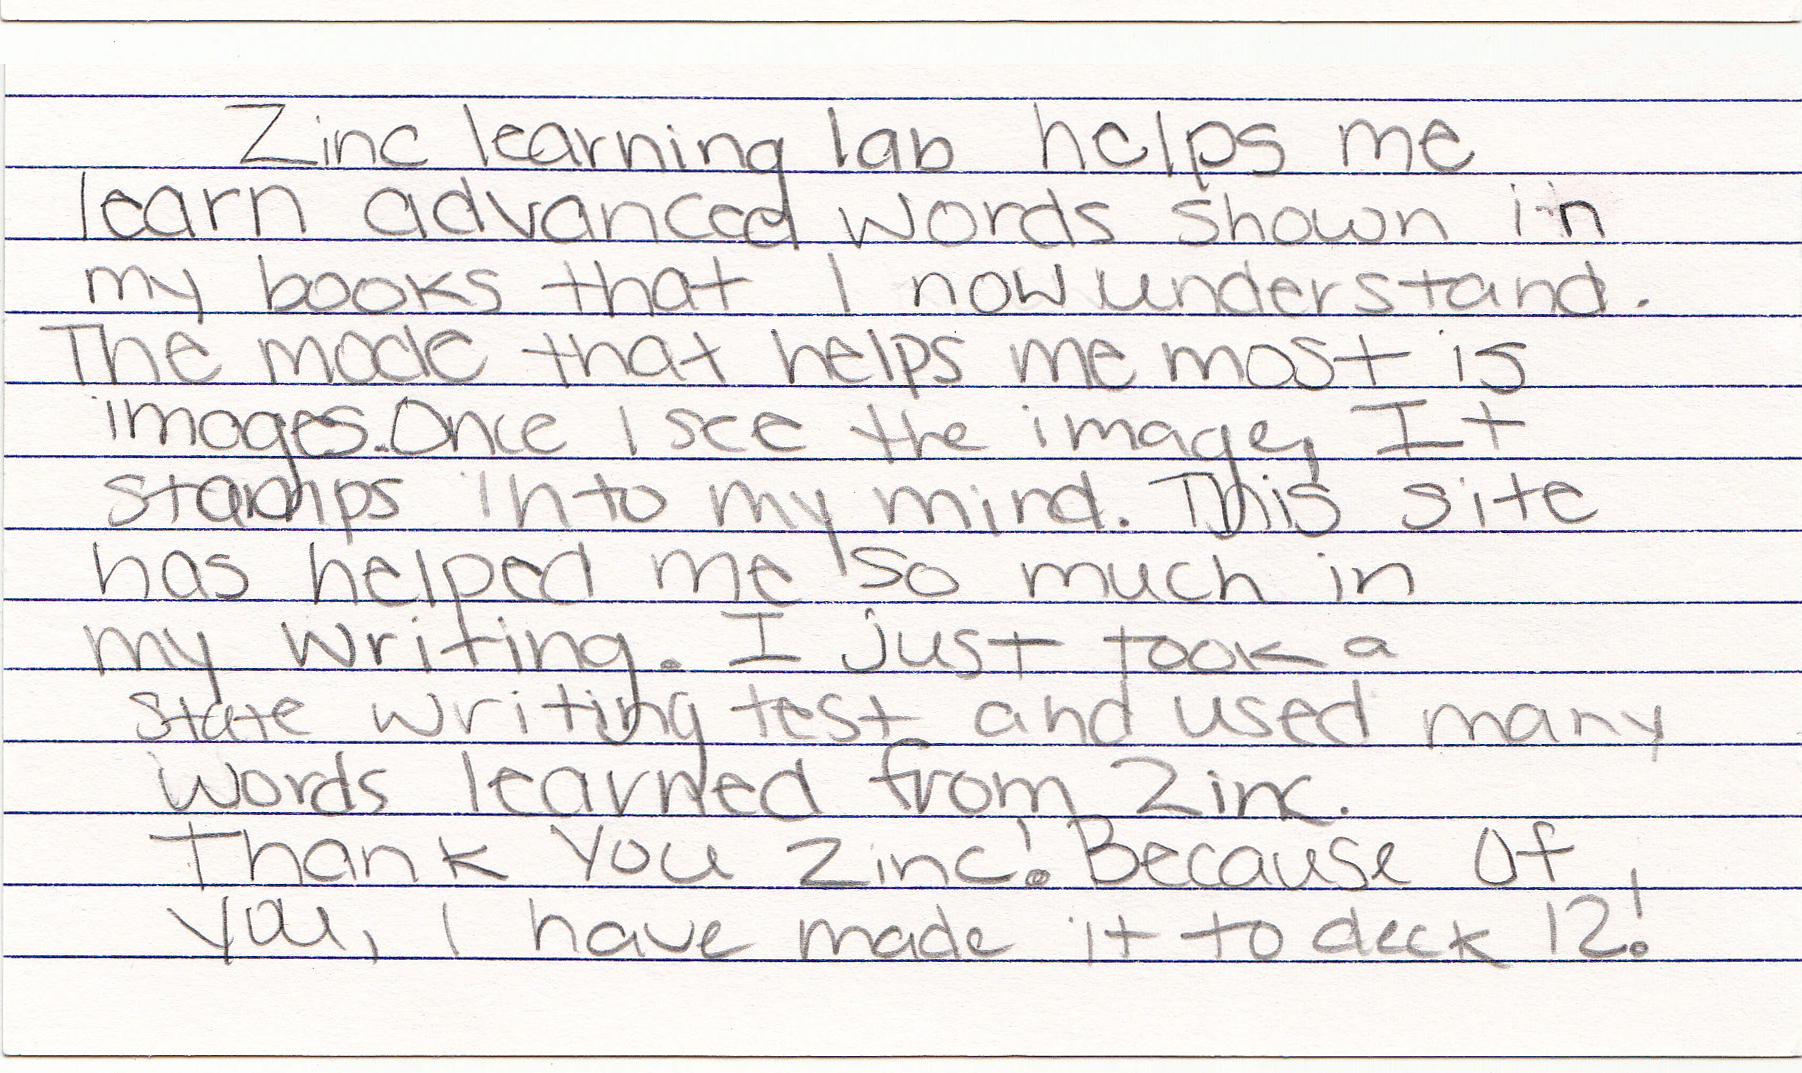 Zinc learning lab helps me
learn advanced words shown in
my books that I now understand.
The mode that helps me most is
images. Once I see the image, It
stamps into my mind. This site
has helped me so much in
my writing. I just took a
state writing test and used many
words learned from Zinc.
Thank you Zinc! Because Of
you, I have made it to deck 12!